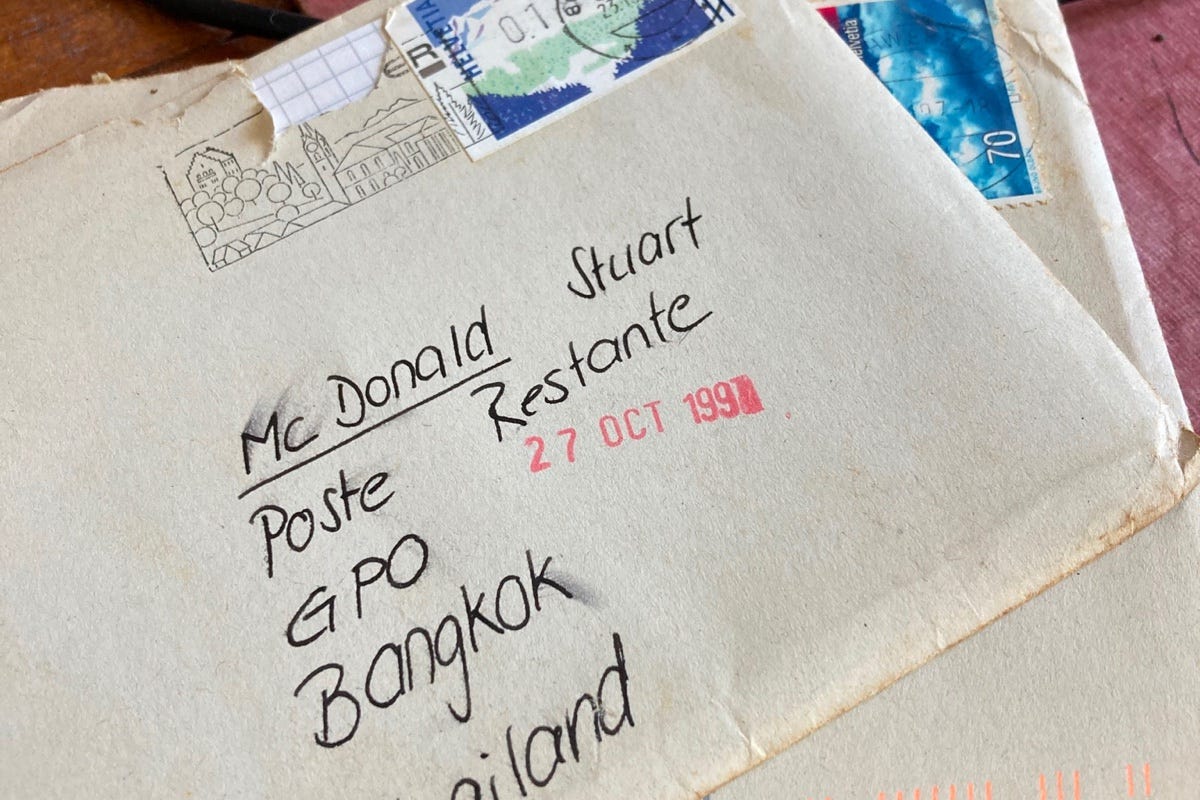 HELVETIA
0.1
23.1
Helvetia
70
Mc Donald Stuart
Poste Restante
27 OCT 199
GPO
Bangkok
ailand